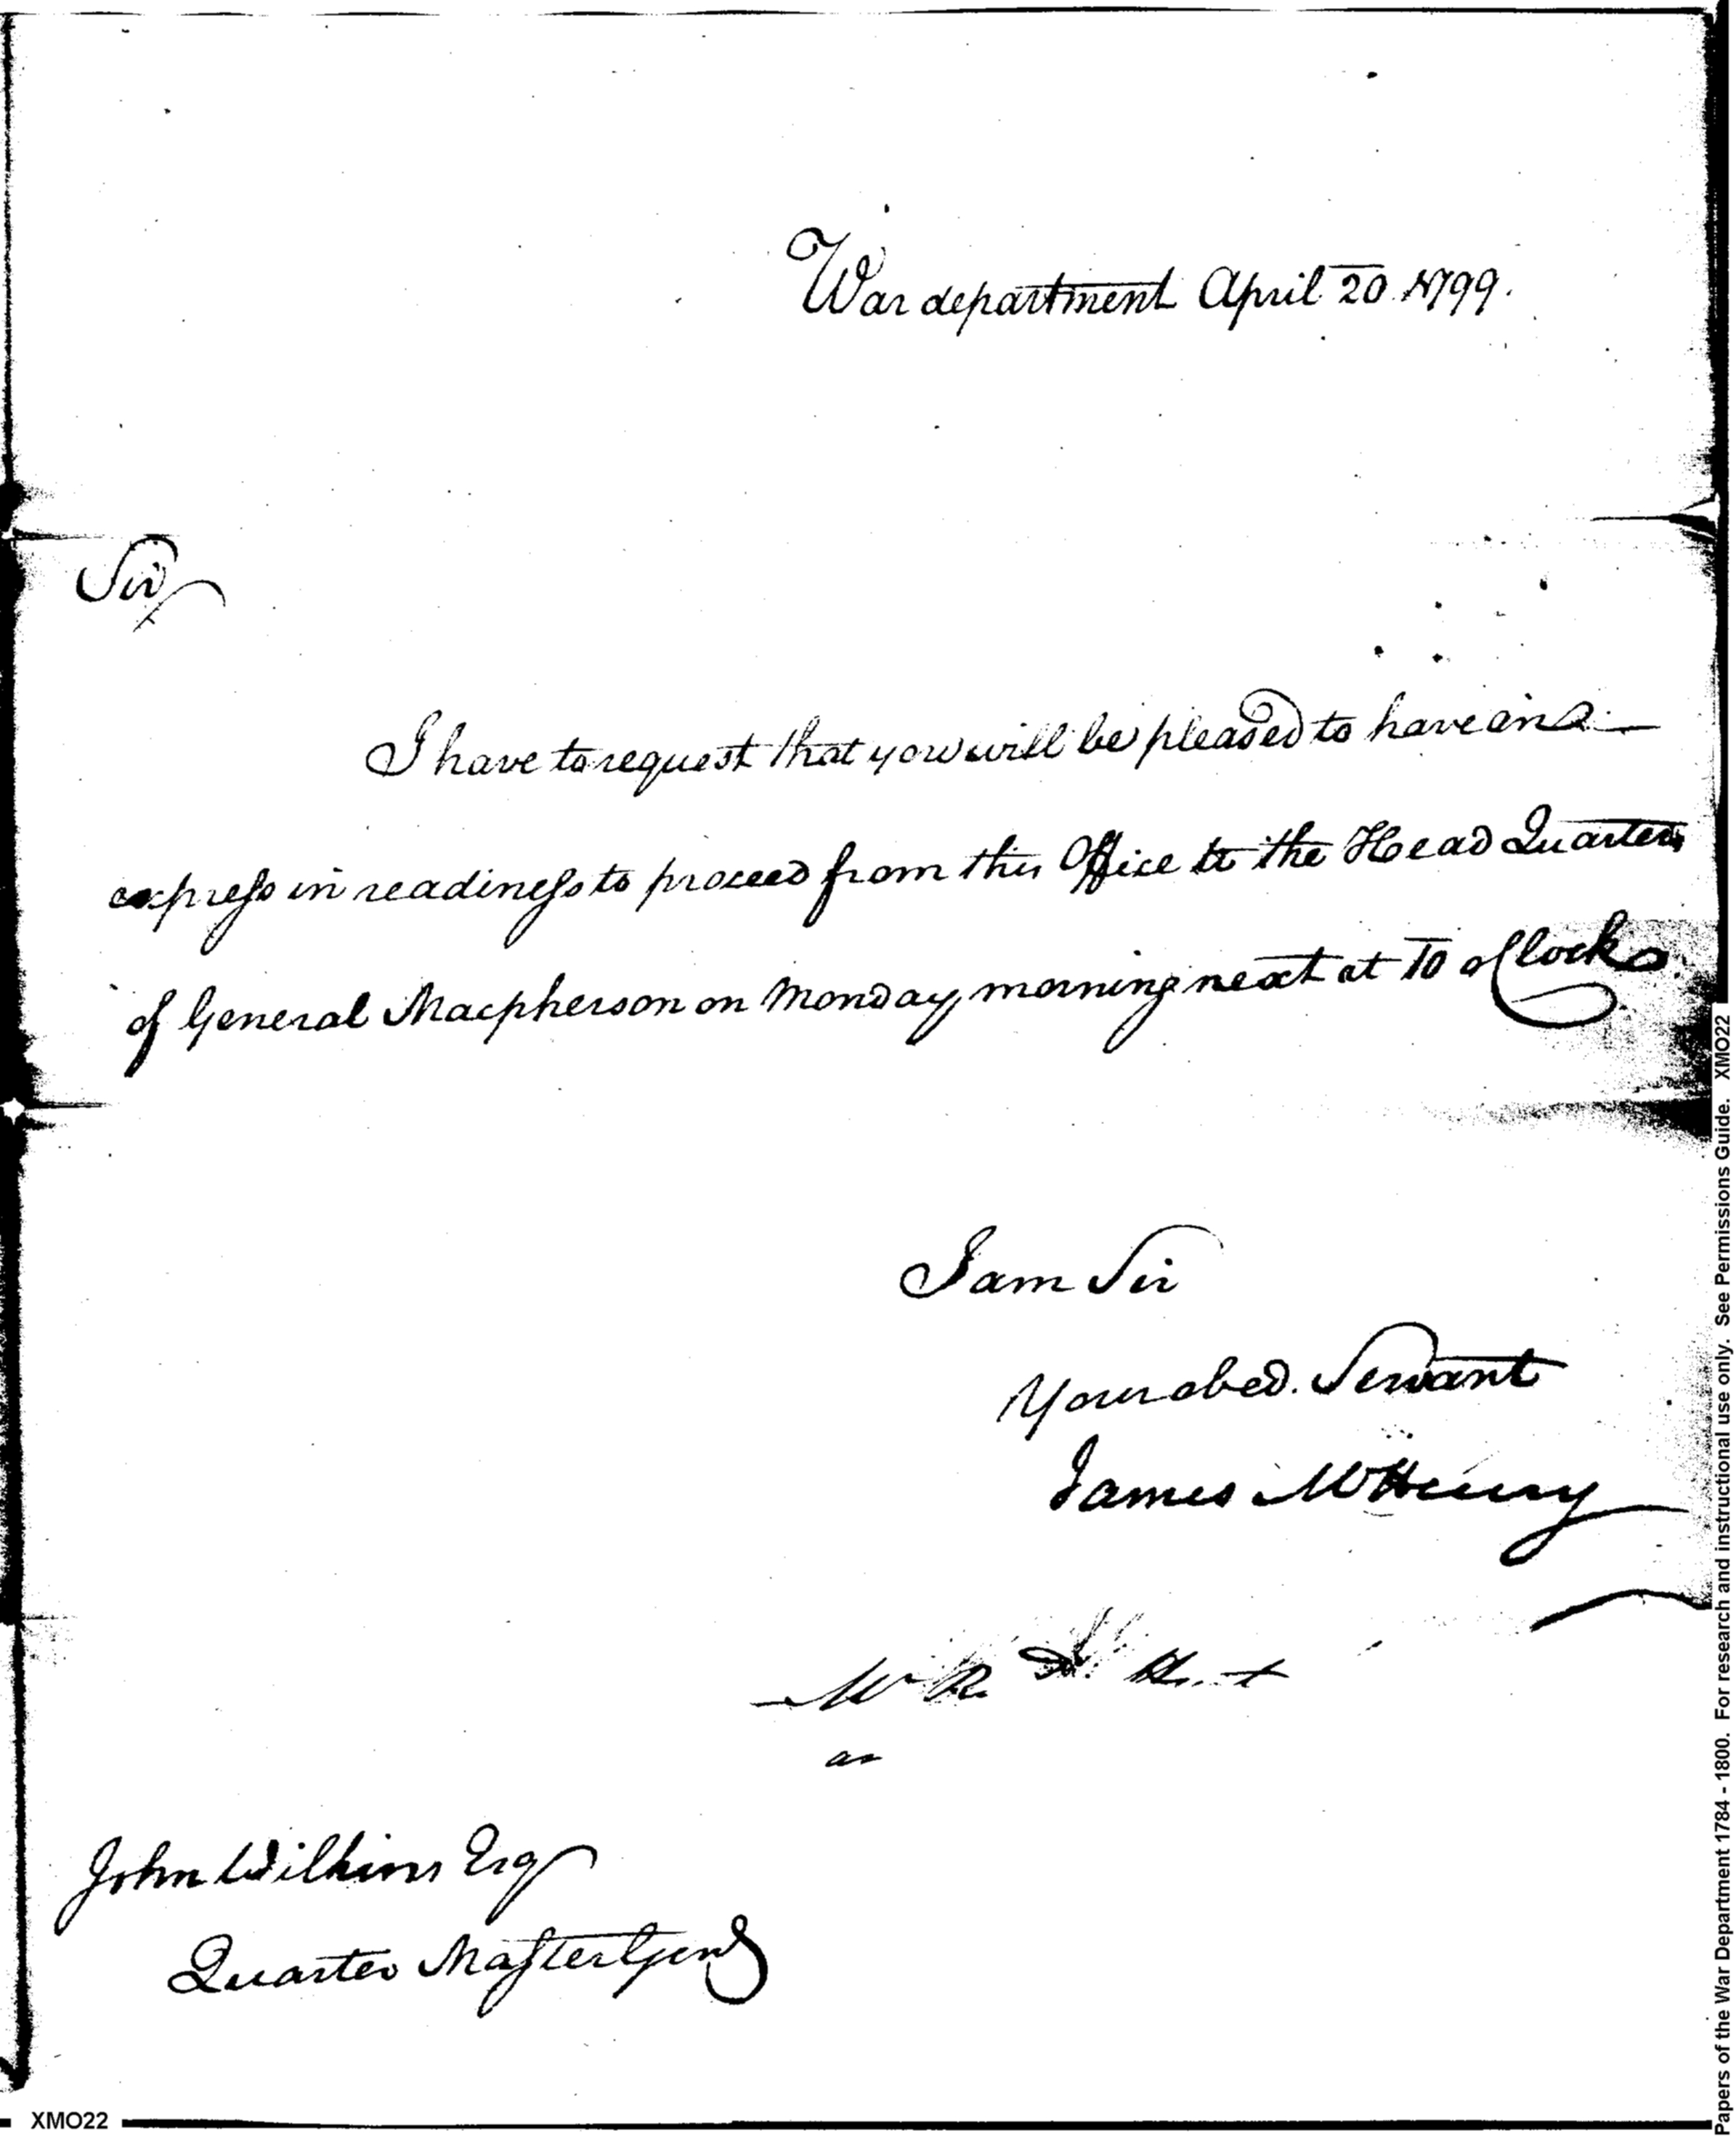 War department April 20 1799.
Sir
I have to request that you will be pleased to have an
express in readiness to proceed from this Office to the Head Quarters
of General Macpherson on Monday morning next at 10 oClock
I am Sir
Your obed. Servant
James McHenry
John Wilkins Esq
Quarter Master Genl
XMO22
Papers of the War Department 1784 - 1800. For research and instructional use only. See Permissions Guide. XMO22